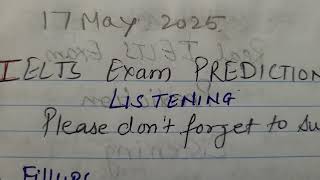 17 May 2025
IELTS Exam PREDICTION
LISTENING
Please don't forget to Su
Fillups